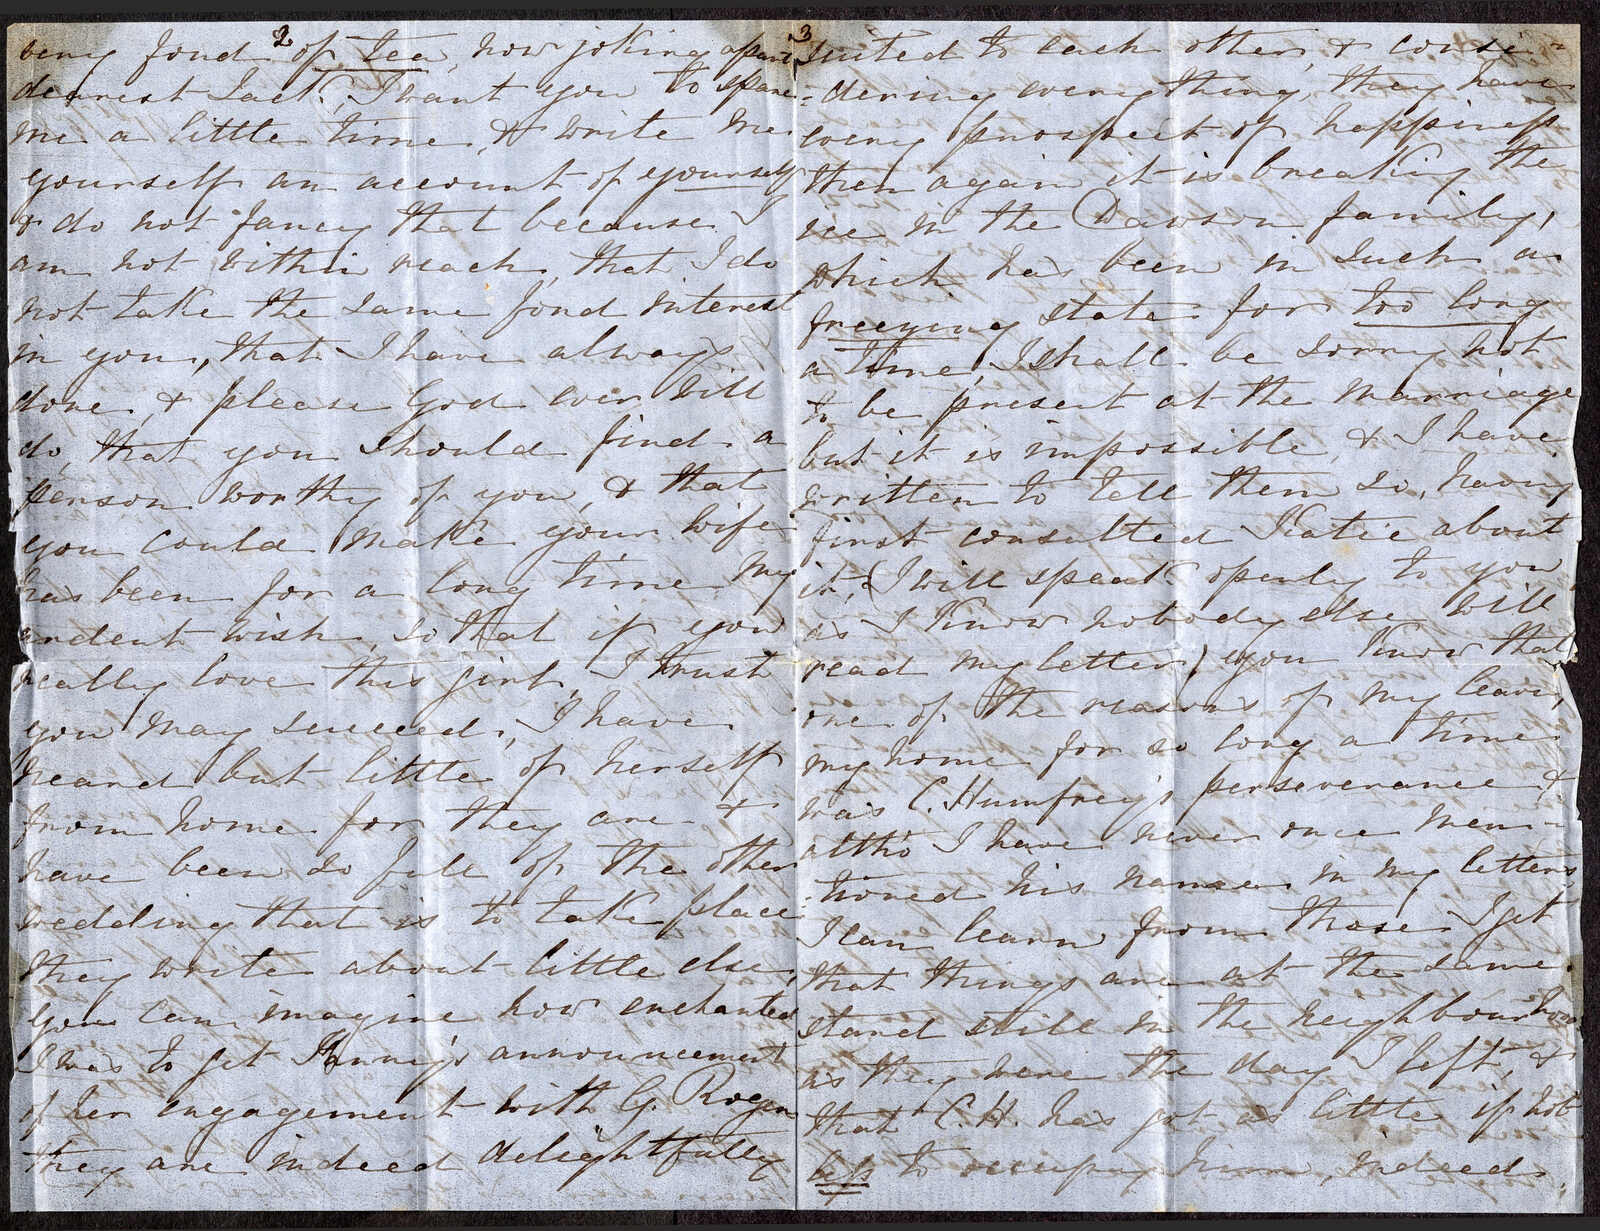 2
being fond of tea, now joking apart
dearest Jack, I want you to spare
me a little time, & write me
yourself an account of yourself
& do not fancy that because I
am not within reach, that I do
not take the same fond interest
in you, that I have always
done, & please God ever will
do, that you should find a
person worthy of you, & that
you could make your wife
has been for a long time my
ardent wish, so that if you
really love this girl, I trust
you may succeed, I have
heard but little of herself
from home for they are &
have been so full of the other
wedding that is to take place
they write about little else,
you can imagine how enchanted
I was to get Fanny's announcement
of her engagement with G. Roger
they are indeed delightfully
3
suited to each other, & consi-
-dering everything, they have
every prospect of happiness
then again it is breaking the
ice in the Dawson family,
which has been in such a
freezing state for too long
a time, I shall be sorry not
to be present at the marriage
but it is impossible, & I have
written to tell them so, having
first consulted Katie about
it, (I will speak openly to you
as I know nobody else will
read my letter) you know that
one of the reasons of my leavg
my home for so long a time
was C. Humfrey's perseverance &
altho' I have never once men-
-tioned his name in my letters,
I can learn from those I get
that things are at the same
stand still in the neighbourhood
as they were the day I left, &
that C.H. has got as little if not
less to occupy him, indeed